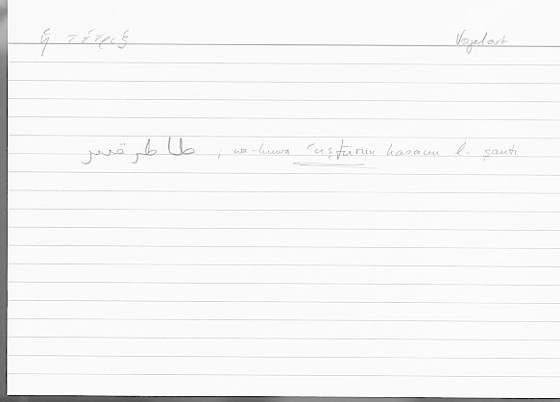 ἡ τέτριξ Vogelart
طاطرقس ; wa-huwa ʿuṣfūrun ḥasanu l-ṣauti